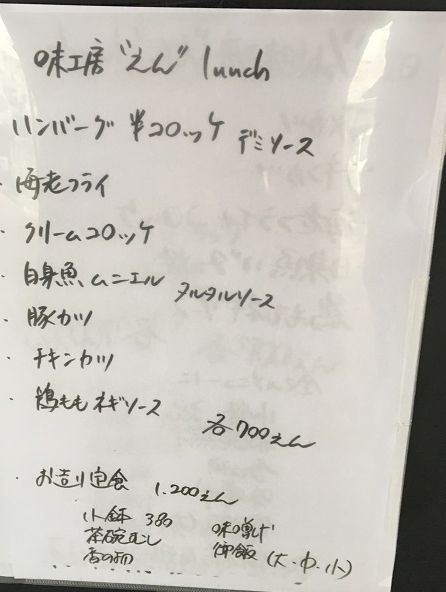 味工房"えん" lunch
ハンバーグ 半コロッケ デミソース
・海老フライ
・クリームコロッケ
・白身魚ムニエル タルタルソース
・豚カツ
・チキンカツ
・鶏ももネギソース
各700えん
・お造り定食 1,200えん
小鉢 3品 味噌汁
茶碗むし 御飯 (大・中・小)
香の物